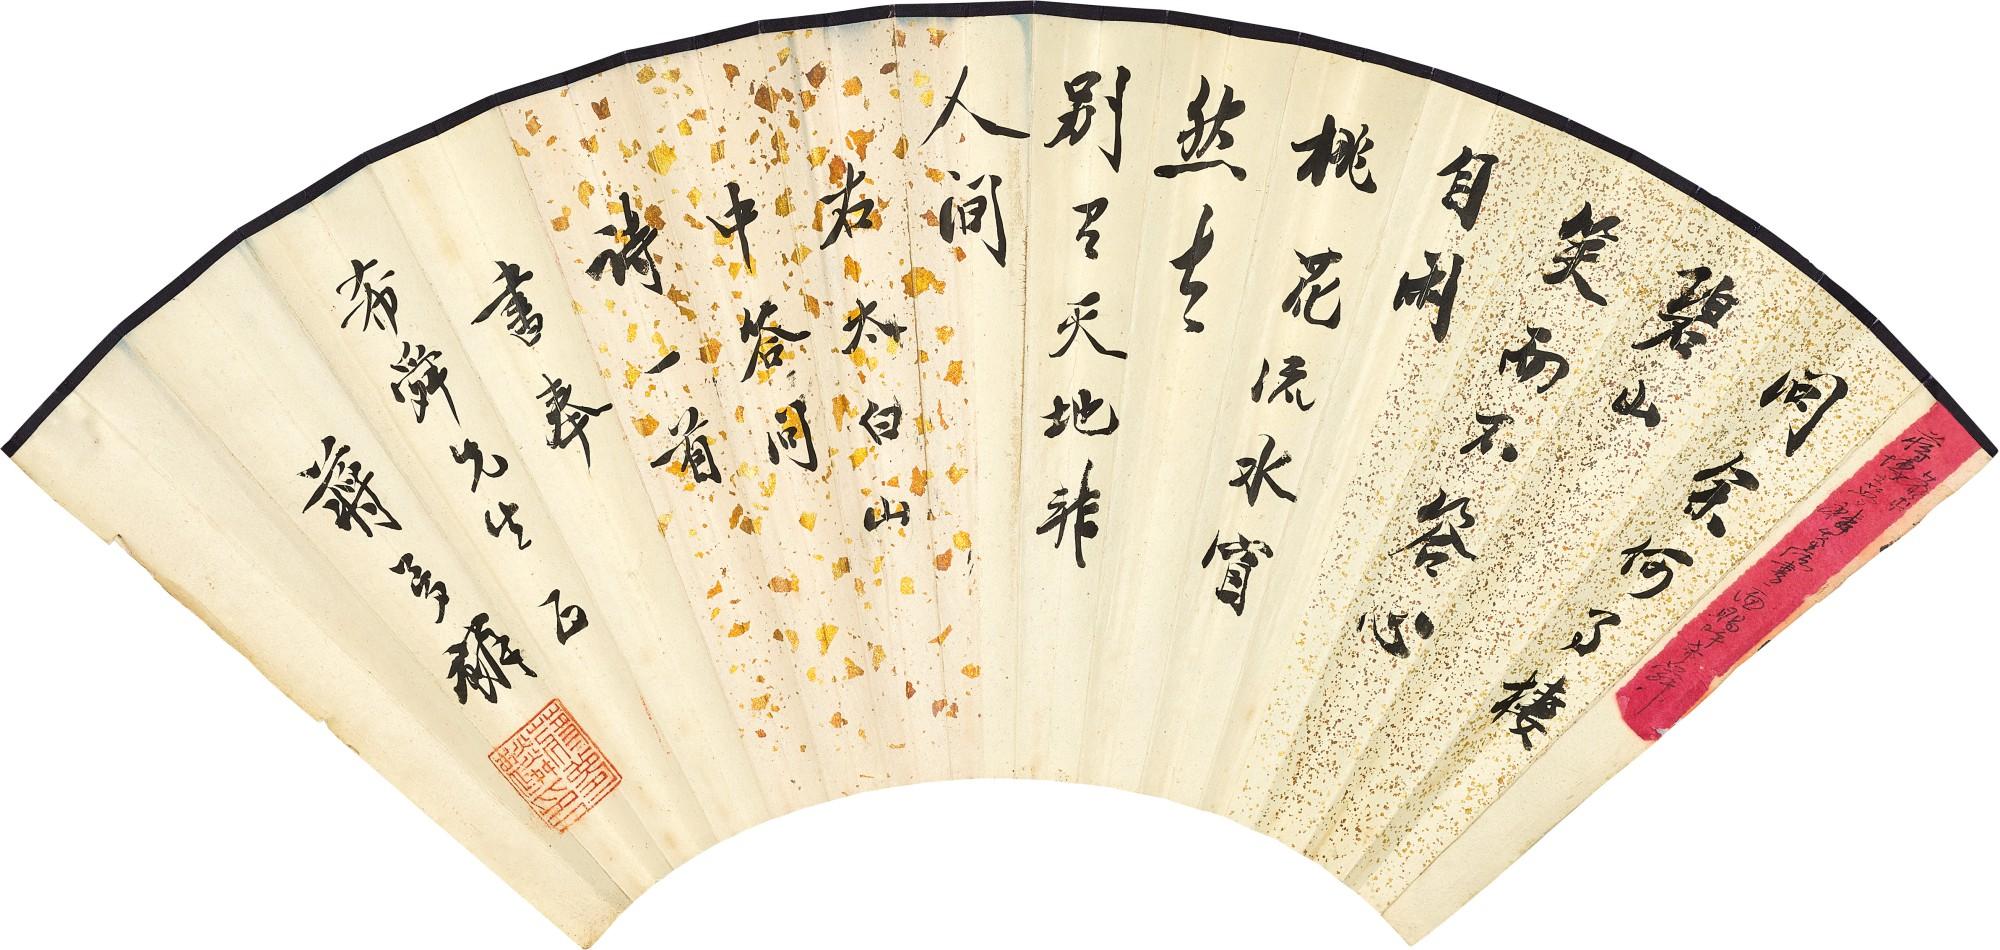 問余何事棲
碧山
笑而不答心
自閑
桃花流水窅
然去
別有天地非
人間
右太白山
中答問
詩一首
書奉
希舜先生正
蔣夢麟